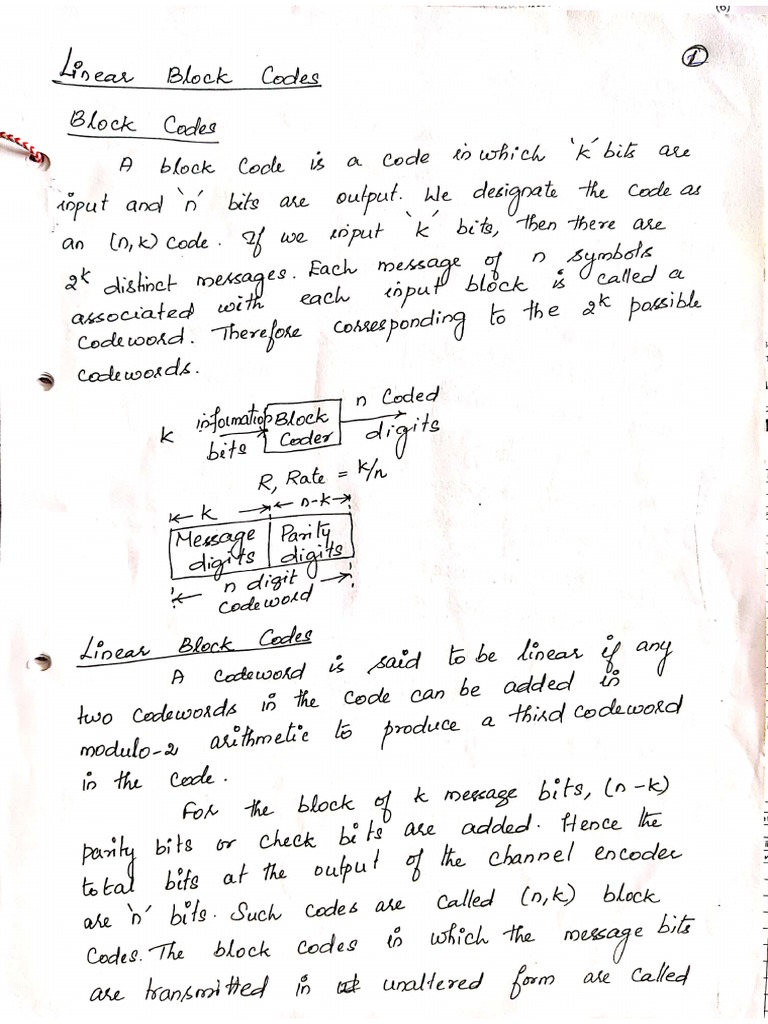 (6)
1
Linear Block Codes
Block Codes
A block code is a code in which 'k' bits are
input and 'n' bits are output. We designate the code as
an (n,k) code. If we input 'k' bits, then there are
2^k distinct messages. Each message of n symbols
associated with each input block is called a
codeword. Therefore corresponding to the 2^k possible
codewords.
k information bits
Block Coder
n Coded digits
R, Rate = k/n
k
n-k
Message digits
Parity digits
n digit
codeword
Linear Block Codes
A codeword is said to be linear if any
two codewords in the code can be added in
modulo-2 arithmetic to produce a third codeword
in the code.
For the block of k message bits, (n-k)
parity bits or check bits are added. Hence the
total bits at the output of the channel encoder
are 'n' bits. Such codes are called (n,k) block
codes. The block codes in which the message bits
are transmitted in unaltered form are called